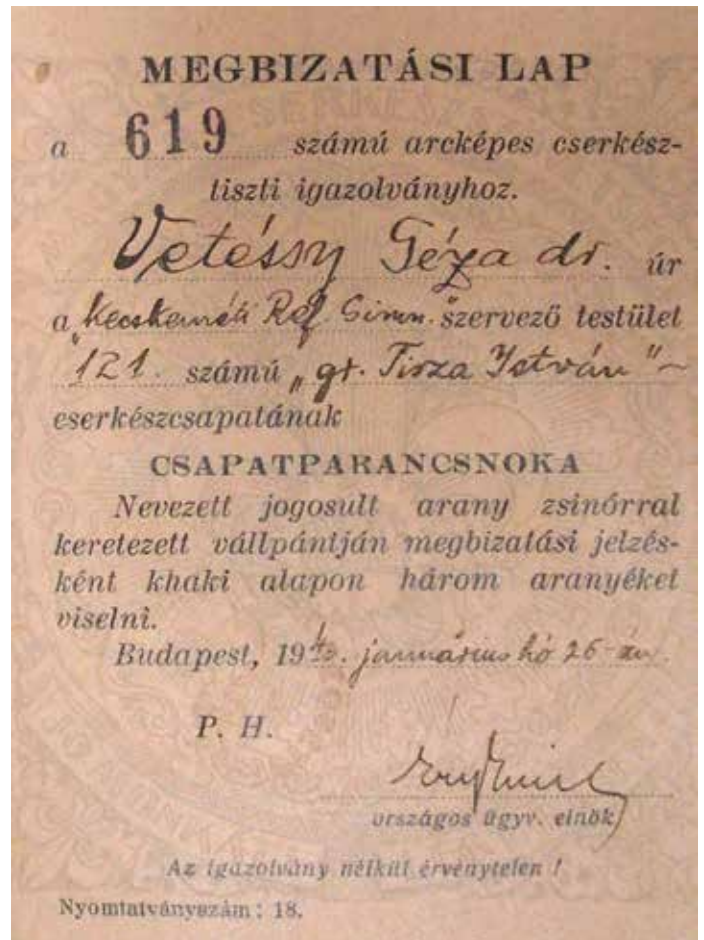 MEGBIZATÁSI LAP
a 619 számú arcképes cserkész-
tiszti igazolványhoz.
Vetéssy Géza dr. úr
a „Kecskeméti Ref. Gimn." szervező testület
121. számú „gr. Tisza István"
cserkészcsapatának
CSAPATPARANCSNOKA
Nevezett jogosult arany zsinórral
keretezett vállpántján megbizatási jelzés-
ként khaki alapon három aranyéket
viselni.
Budapest, 1940. január­ius hó 26-án
P. H.
országos ügyv. elnök
Az igazolvány nélkül érvénytelen !
Nyomtatványszám : 18.